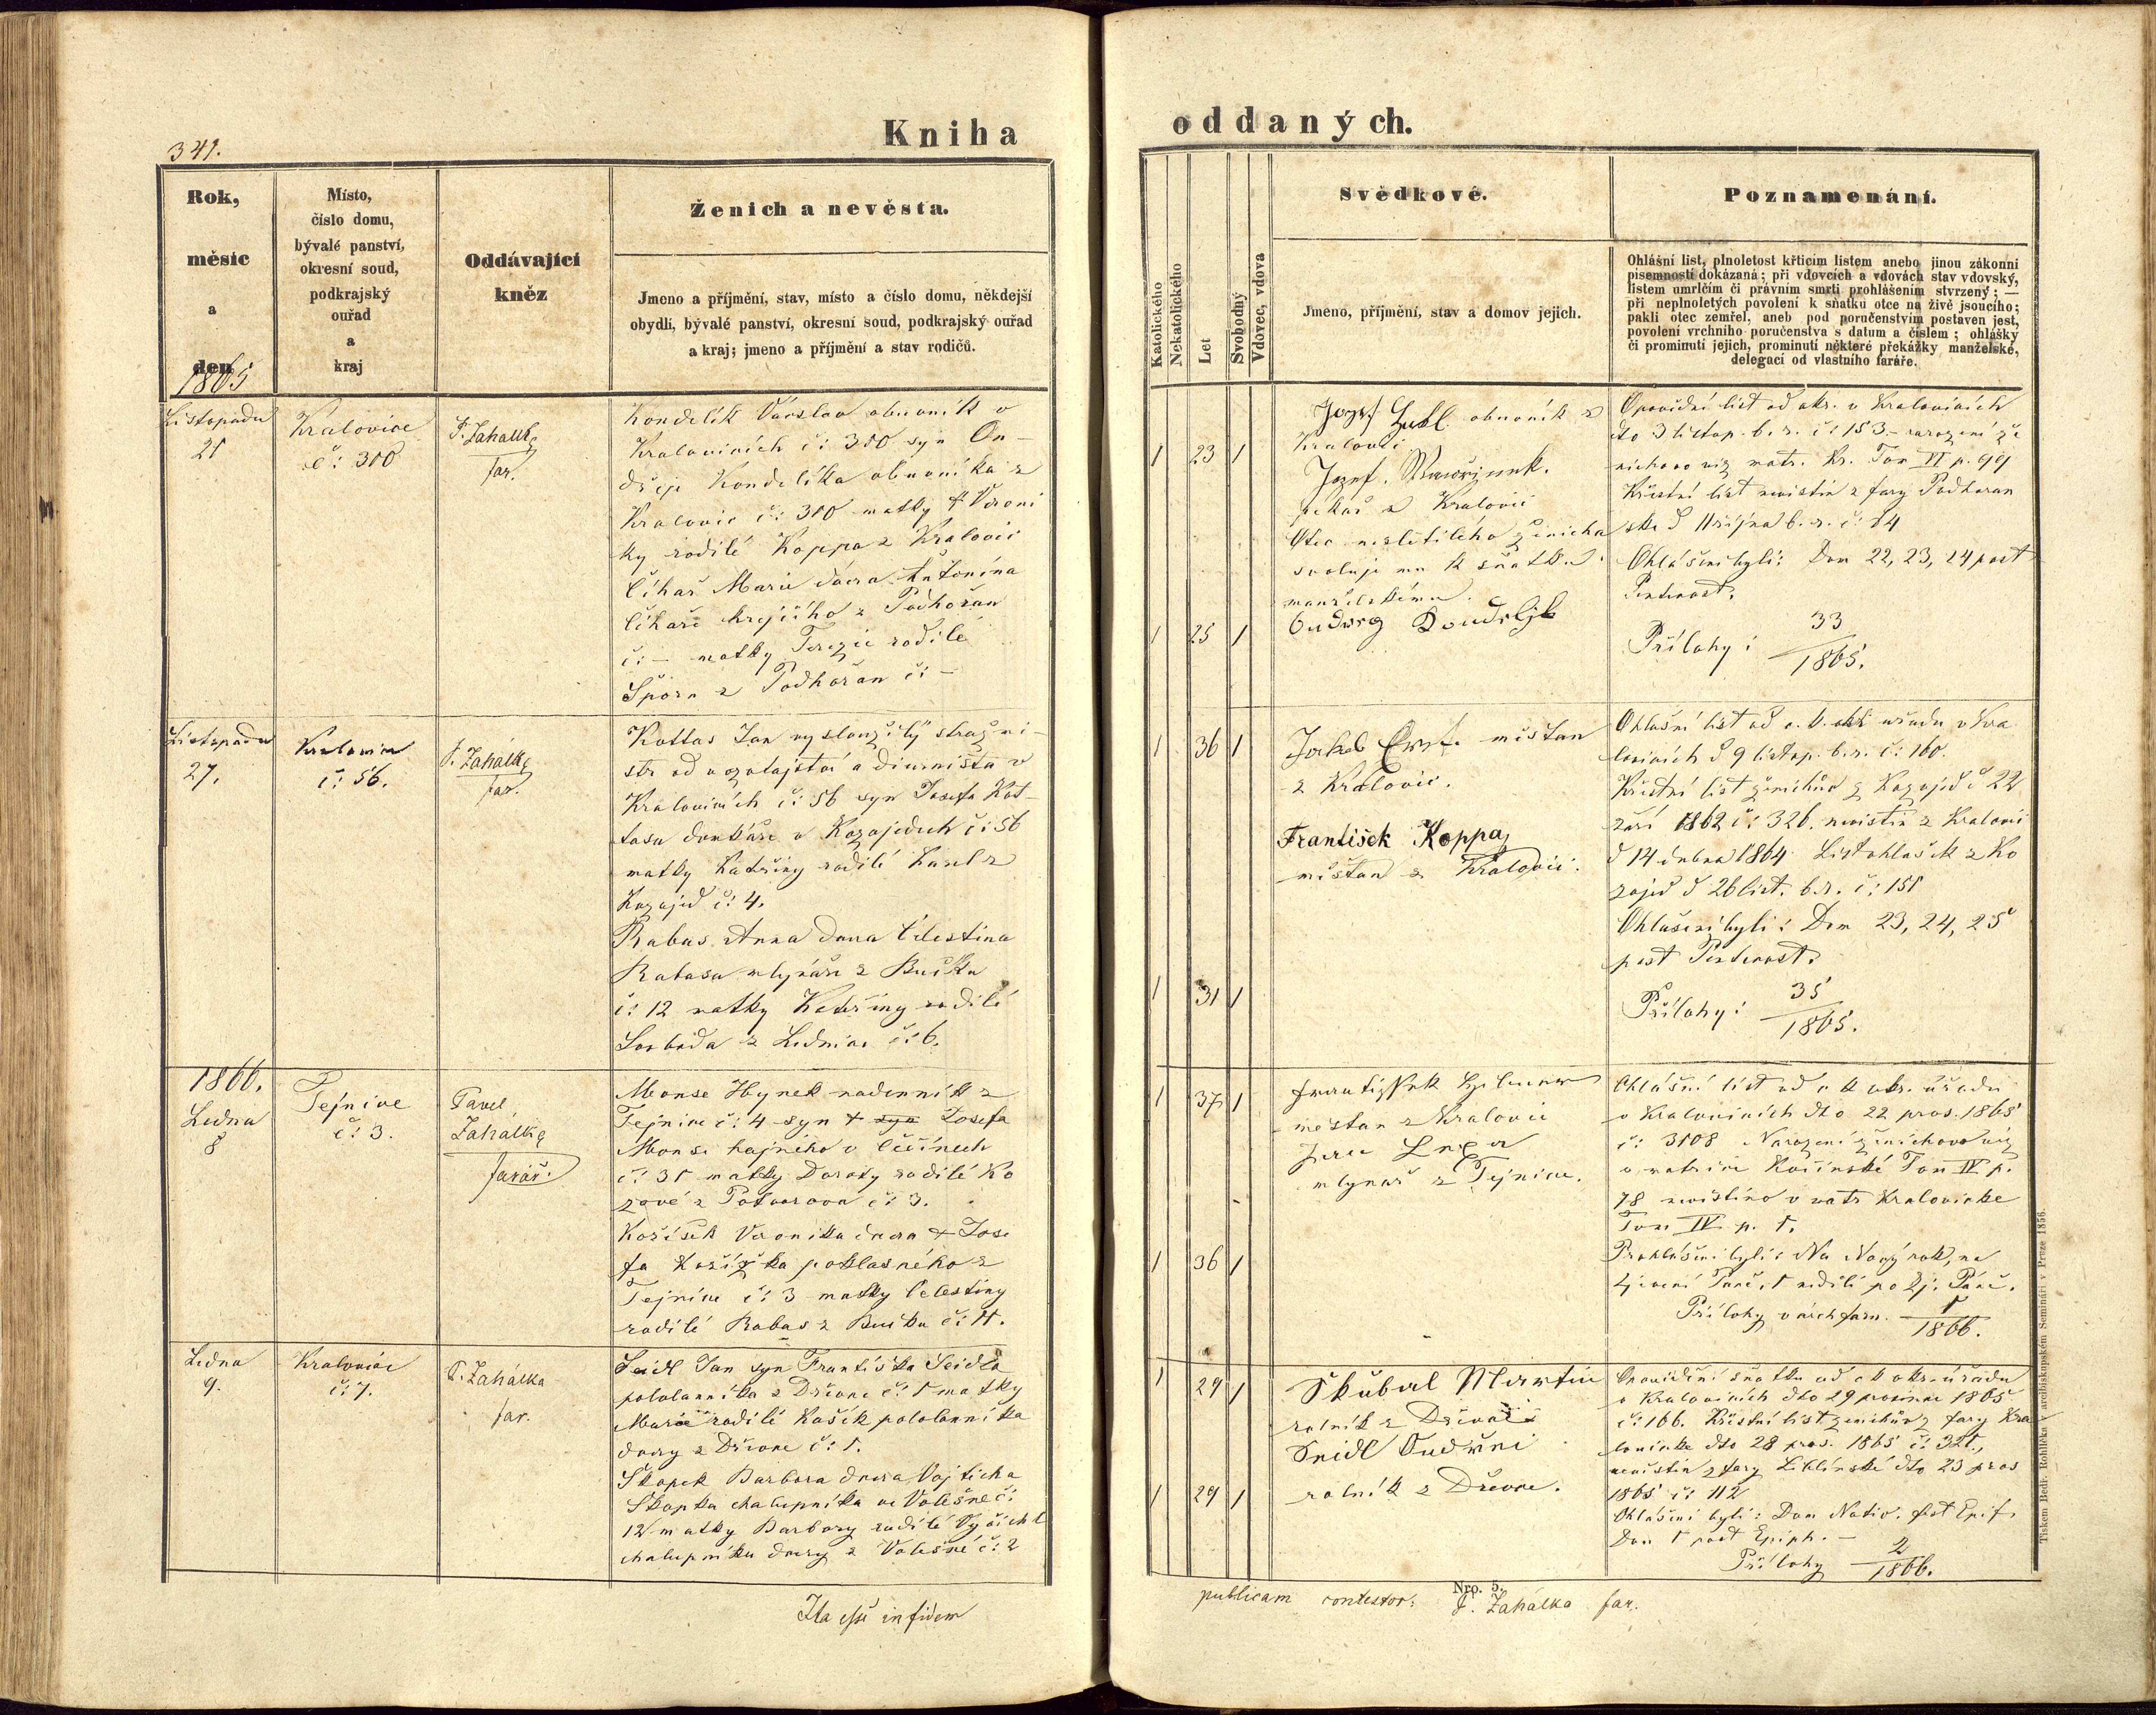 Kniha
oddaných.
341.
Rok,
měsíc
a
den
1865
Místo,
číslo domu,
bývalé panství,
okresní soud,
podkrajský
ouřad
a
kraj
Oddávající
kněz
Ženich a nevěsta.
Jmeno a příjmění, stav, místo a číslo domu, někdejší
obydlí, bývalé panství, okresní soud, podkrajský ouřad
a kraj; jmeno a příjmění a stav rodičů.
Katolického
Nekatolického
Let
Svobodný
Vdovec, vdova
Svědkové.
Jmeno, příjmění, stav a domov jejich.
Poznamenání.
Ohlášní list, plnoletost křticím listem anebo jinou zákonní
písemností dokázaná; při vdovcích a vdovách stav vdovský,
listem umrlčím či právním smrti prohlášením stvrzený; —
při neplnoletých povolení k sňatku otce na živě jsoucího;
pakli otec zemřel, aneb pod poručenstvím postaven jest,
povolení vrchního poručenstva s datum a číslem; ohlášky
či prominutí jejich, prominutí některé překážky manželské,
delegací od vlastního faráře.
Listopadu
21
Kralovice
č: 310
F. Zahalka
far.
Kondelík Václav obuvník v
Kralovicích č: 310 syn On-
dřeje Kondelíka obuvníka z
Kralovic č: 310 matky † Veroni
ky rodilé Koppa z Kralovic
Číhař Marie dcera Antonína
Číhaře krejčího z Podhořan
č: – matky Terezie rodilé
Šporn z Podhořan č: –
1 23 1
1 25 1
Jozef obuvník z
Kralovic
Jozef
pekař z Kralovic
Otec nezletilého ženicha
svoluje mu k sňatku
manželskému.
Ondrzeg Kondeljk
Opovědní list od okr. v Kralovicích
dto 3 listop. b.r. č: 153 – narození že
nichovo viz matr. Kr. Tom VI p. 991
Křestní list nevěstin z fary Podhoran
ske d 11 října b. r. č: 84
Ohlášeni byli: Dom 22, 23, 24 post
Pentecost.
Přílohy: 33
1865.
Listopadu
27.
Kralovice
č: 56.
F. Zahálka
far.
Kottas Jan vysloužilý strážmi-
str od a diurnista v
Kralovicích č: 56 syn Josefa Kot-
tasa domkáře v Kozojedech č: 56
matky Kateřiny rodilé Karel z
Kozojed č: 4.
Rabas Anna dcera Celestina
Rabasa mlynáře z Bučku
č: 12 matky Kateřiny rodilé
Svoboda z Lednice č: 6.
1 36 1
1 31 1
Jakob Ernst měšťan
z Kralovic.
František Koppa,
měšťan z Kralovic.
Ohlašní list od c. k. okr. uřadu v Kra
lovicích d 9 listop. b.r. č: 160.
Křestní list ženichův z Kozojed d 22
září 1862 č: 326. nevěstin z Kralovic
d 14 dubna 1864. List ohlašek z Ko
zojed d 26 list. b.r. č: 151
Ohlášeni byli: Dom 23, 24, 25
post Pentecost.
Přílohy: 35
1865.
1866.
Ledna
8
Tejnice
č: 3.
Pavel
Zahalka
farář.
Monse Hynek nadenník z
Tejnice č: 4 syn † syn Josefa
Monse hajného v Čečínech
č: 31 matky Doroty rodilé Ko
zové z Potvorova č: 3.
Kožíšek Veronika dcera † Jose
fa Kožíška poklasného z
Tejnice č: 3 matky Celestiny
rodilé Rabas z Bučku č: 11.
1 37 1
1 36 1
Frantissek
mestan z Kralovic
mlynář z Tejnice.
Ohlášní list od c k okr. úřadu
v Kralovicích dto 22 pros. 1865
č: 3108 Narození ženichovo viz
v matrice Kožínské Tom IV p.
78 nevěstino v matr Kralovicke
Tom IV p. 1.
Prohlášeni byli: Na Nový rok, na
Zjevení Páně, 1 neděli po Zj. Páně.
Přílohy v arch farn. 1
1866.
Ledna
9.
Kralovice
č: 7.
F. Zahálka
far.
Seidl Jan syn Františka Seidla
pololanníka z Dřevce č: 1 matky
Marie rodilé Kašík pololanníka
dcery z Dřevce č: 1.
Skopek Barbora dcera Vojtěcha
Skopka chalupníka ve Volešné č:
12 matky Barbory rodilé Vyčichl
chalupníka dcery z Volešné č: 2
1 29 1
1 29 1
Škubal Martin
rolník z Dřevce
Seidl Ondřei
rolník z Dřevce.
Opovědění sňatku od c k okr. úřadu
v Kralovicích dto 29 prosince 1865
č: 166. Křestní list ženichův z fary Kra
lovicke dto 28 pros. 1865 č: 321,
nevěstin z fary Liblínské dto 23 pros
1865 č: 112
Ohlášeni byli: Dom Nativ. fest Epif.
Dom 1 post Epiph. –
Přílohy 2
1866.
Ita esse in fidem
publicam contestor: F. Zahálka far.
Nro. 5.
Tiskem Bedř. Rohlíčka v arcibiskupském Semináři v Praze 1856.